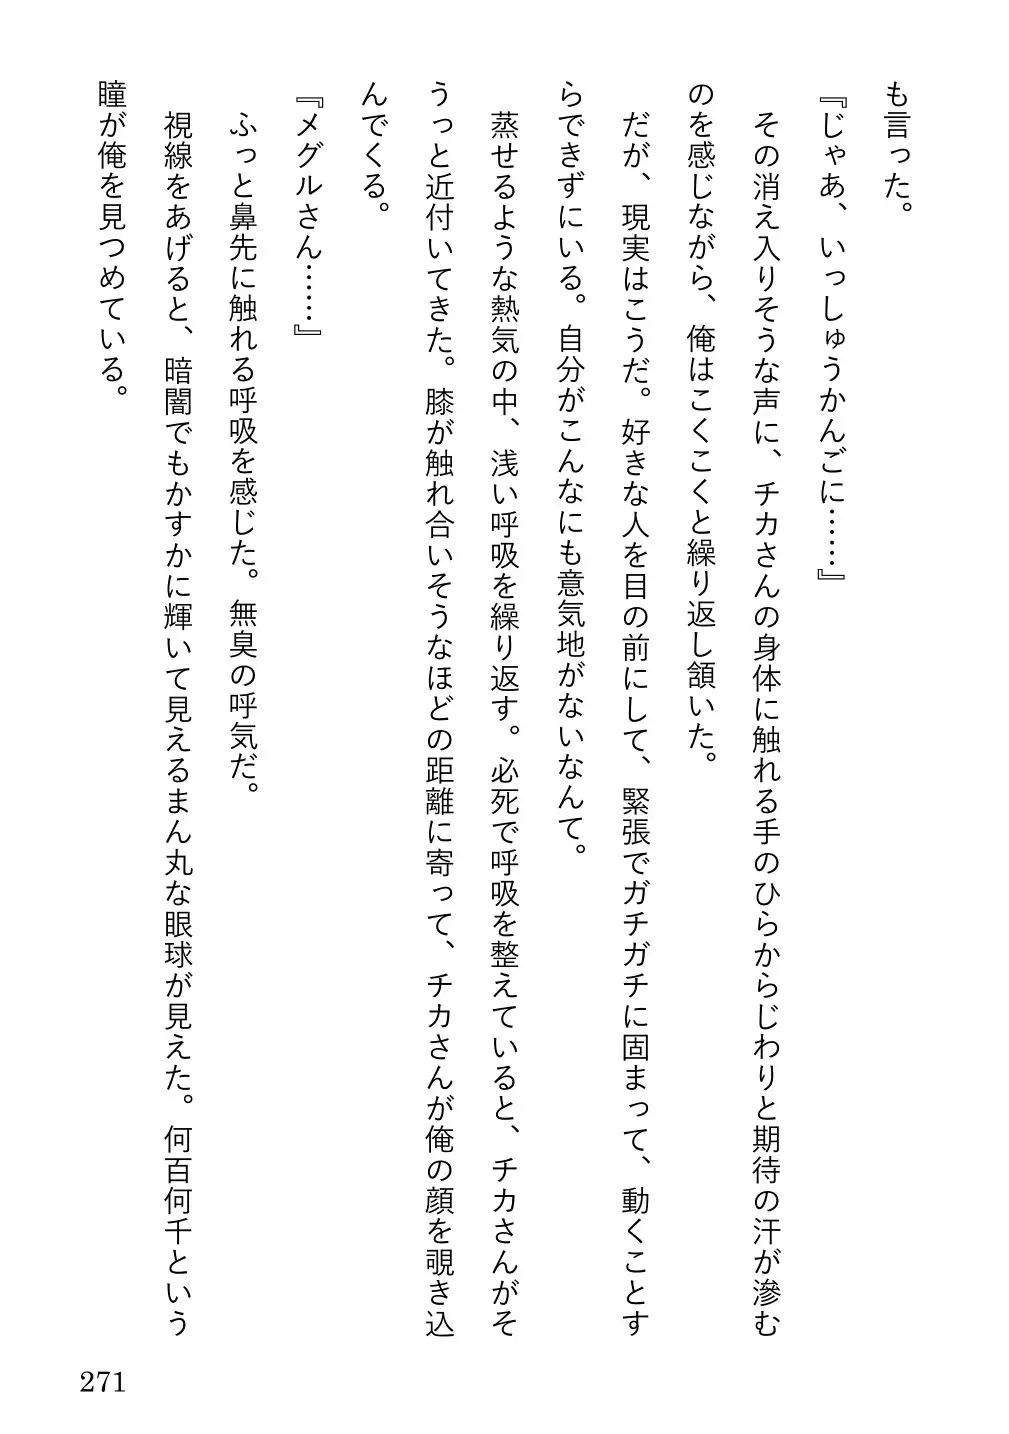 も言った。
『じゃあ、いっしゅうかんごに……』
その消え入りそうな声に、チカさんの身体に触れる手のひらからじわりと期待の汗が滲む
のを感じながら、俺はこくこくと繰り返し頷いた。
だが、現実はこうだ。好きな人を目の前にして、緊張でガチガチに固まって、動くことす
らできずにいる。自分がこんなにも意気地がないなんて。
蒸せるような熱気の中、浅い呼吸を繰り返す。必死で呼吸を整えていると、チカさんがそ
うっと近付いてきた。膝が触れ合いそうなほどの距離に寄って、チカさんが俺の顔を覗き込
んでくる。
『メグルさん……』
ふっと鼻先に触れる呼吸を感じた。無臭の呼気だ。
視線をあげると、暗闇でもかすかに輝いて見えるまん丸な眼球が見えた。何百何千という
瞳が俺を見つめている。
271